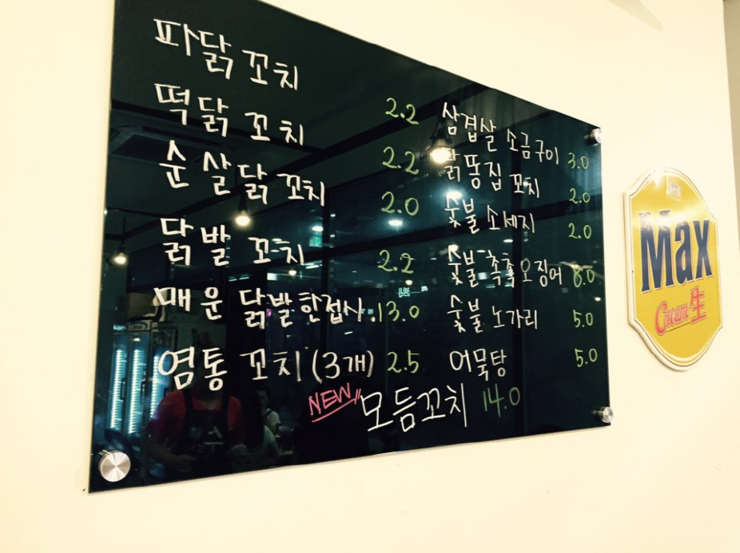 파닭 꼬치 2.2
떡닭 꼬치 2.2
순살닭꼬치 2.0
닭발 꼬치 2.2
매운 닭발한접시 13.0
염통 꼬치 (3개) 2.5
삼겹살 소금구이 3.0
닭똥집 꼬치 2.0
숯불 소세지 2.0
숯불 촉촉오징어
숯불 노가리 5.0
어묵탕 5.0
NEW 모듬꼬치 14.0
Max
Cream 生